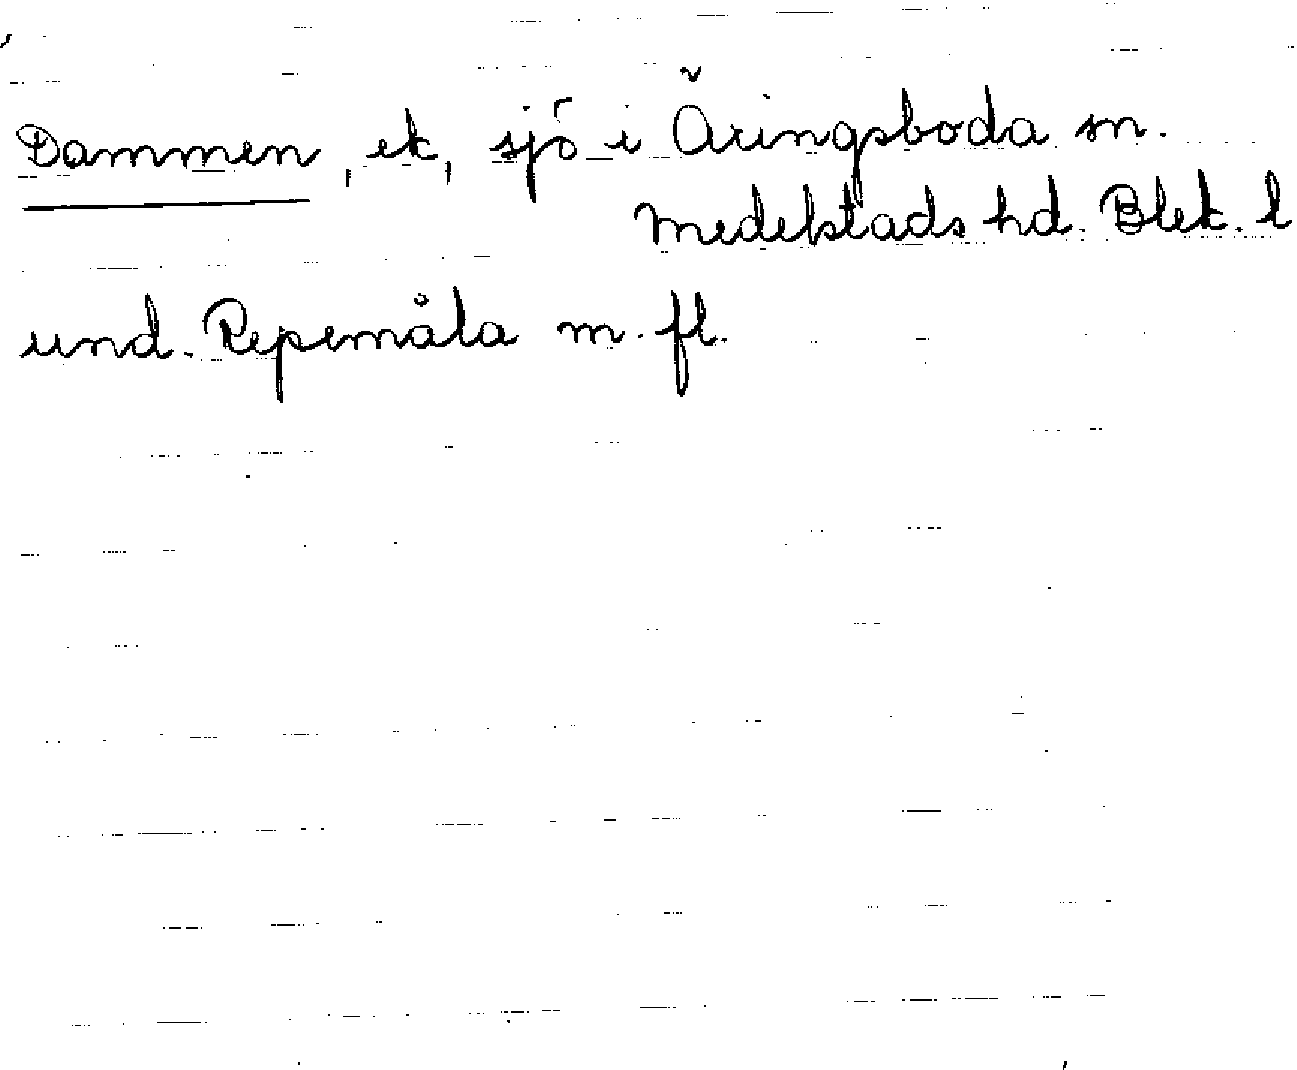 Dammen, ek, sjö i Åringsboda sn.
Medelstads hd. Blek. l
und. Repemåla m. fl.